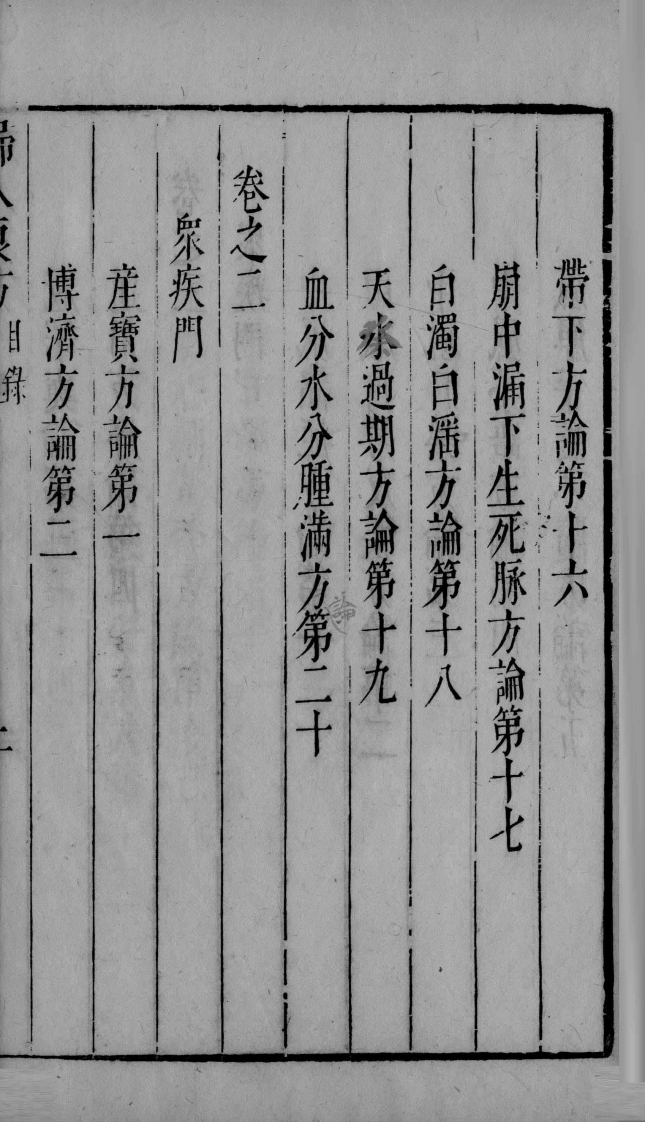 帶下方論第十六
崩中漏下生死脉方論第十七
白濁白滛方論第十八
天水過期方論第十九
血分水分腫滿方第二十
論
卷之二
衆疾門
産寶方論第一
博濟方論第二
婦人良方 目錄 二